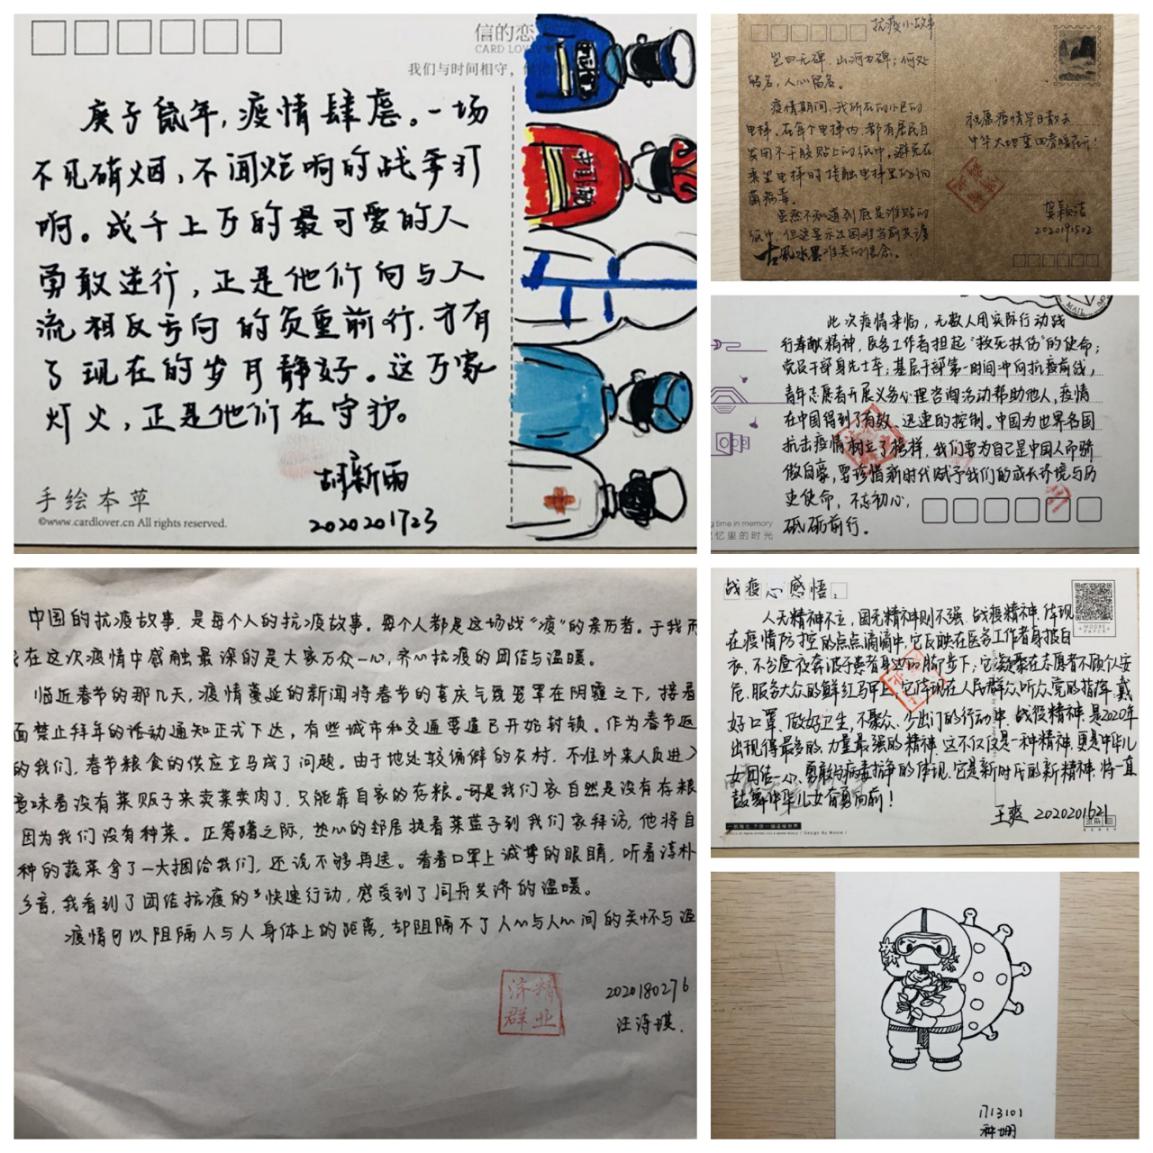 信的恋
CARD LOV
我们与时间相守，
庚子鼠年，疫情肆虐。一场
不见硝烟，不闻炮响的战争打
响。成千上万的最可爱的人
勇敢逆行，正是他们向与人
流相反方向的负重前行，才有
了现在的岁月静好。这万家
灯火，正是他们在守护。
胡新雨
2020201723
手绘本草
©www.cardlover.cn All rights reserved.
抗疫小故事
岂曰无碑，山河为碑；何处
留名，人心留名。
疫情期间，我所在的小区的
电梯，在每个电梯内，都有居民自
发用不干胶贴上的纸巾，避免在
乘坐电梯时接触电梯里的细
菌病毒。
虽然不知道到底是谁贴的
纸巾，但这显示出困难当前共渡
难关的信念。
古风水墨
祝愿疫情早日散去
中华大地
2020191502
此次疫情来临，无数人用实际行动践
行奉献精神，医务工作者担起“救死扶伤”的使命；
党员干部身先士卒；基层干部第一时间冲向抗疫前线，
青年志愿者开展义务心理咨询活动帮助他人，疫情
在中国得到了有效、迅速的控制。中国为世界各国
抗击疫情树立了榜样，我们要为自己是中国人而骄
傲自豪，要珍惜新时代赋予我们的成长环境与历
史使命，不忘初心，
砥砺前行。
g time in memory
忆里的时光
中国的抗疫故事，是每个人的抗疫故事。每个人都是这场战“疫”的亲历者。于我而
在这次疫情中感触最深的是大家万众一心，齐心抗疫的团结与温暖。
临近春节的那几天，疫情蔓延的新闻将春节的喜庆气氛笼罩在阴霾之下，接着
面禁止拜年的活动通知正式下达，有些城市和交通要道已开始封锁。作为春节返
的我们，春节粮食的供应立马成了问题。由于地处较偏僻的农村，不准外来人员进入
意味着没有菜贩子来卖菜卖肉了，只能靠自家的存粮。可是我们家自然是没有存粮
因为我们没有种菜。正筹躇之际，热心的邻居提着菜篮子到我们家拜访，他将自
种的蔬菜拿了一大捆给我们，还说不够再送。看着口罩上诚挚的眼睛，听着淳朴
乡音，我看到了团结抗疫的快速行动，感受到了同舟共济的温暖。
疫情可以阻隔人与人身体上的距离，却阻隔不了人心与人心间的关怀与温
济精
群业
2020180276
汪诗琪.
战疫心感悟：
人无精神不立，国无精神则不强，战疫精神，体现
在疫情防控的点点滴滴中，它反映在医务工作者身披白
衣，不分昼夜奔波于患者身边的脚步下；它凝聚在志愿者不顾个人安
危，服务大众的鲜红马甲上，它体现在人民群众听众党的指挥，戴
好口罩，做好卫生，不聚众、少出门的行动中。战役精神是2020年
出现得最多的，力量最强的精神，这不仅仅是一种精神，更是中华儿
女团结一心，勇敢与病毒抗争的体现，它是新时代的新精神，将一直
鼓舞中华儿女奋勇向前！
王爽 2020201621
1713101